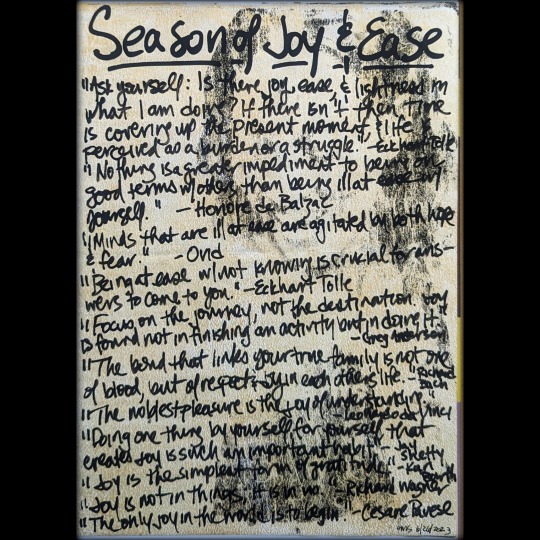 Season of Joy & Ease
"Ask yourself: Is there joy, ease, & lightness in
what I am doing? If there isn't then time
is covering up the present moment, & life is
perceived as a burden or a struggle." - Eckhart Tolle
"Nothing is a greater impediment to being on
good terms w/others than being ill at ease w/
yourself." - Honoré de Balzac
"Minds that are ill at ease are agitated by both hope
& fear." - Ovid
"Being at ease w/not knowing is crucial for ans-
wers to come to you." - Eckhart Tolle
"Focus on the journey, not the destination. Joy
is found not in finishing an activity but in doing it."
- Greg Anderson
"The bond that links your true family is not one
of blood, but of respect & joy in each other's life. - Richard
Bach
"The noblest pleasure is the joy of understanding."
- Leonardo da Vinci
"Doing one thing by yourself for yourself that
creates joy is such an important habit."
"Joy is the simplest form of gratitude." - Karl
Barth
"Joy is not in things; it is in us." - Richard Wagner
"The only joy in the world is to begin." - Cesare Pavese